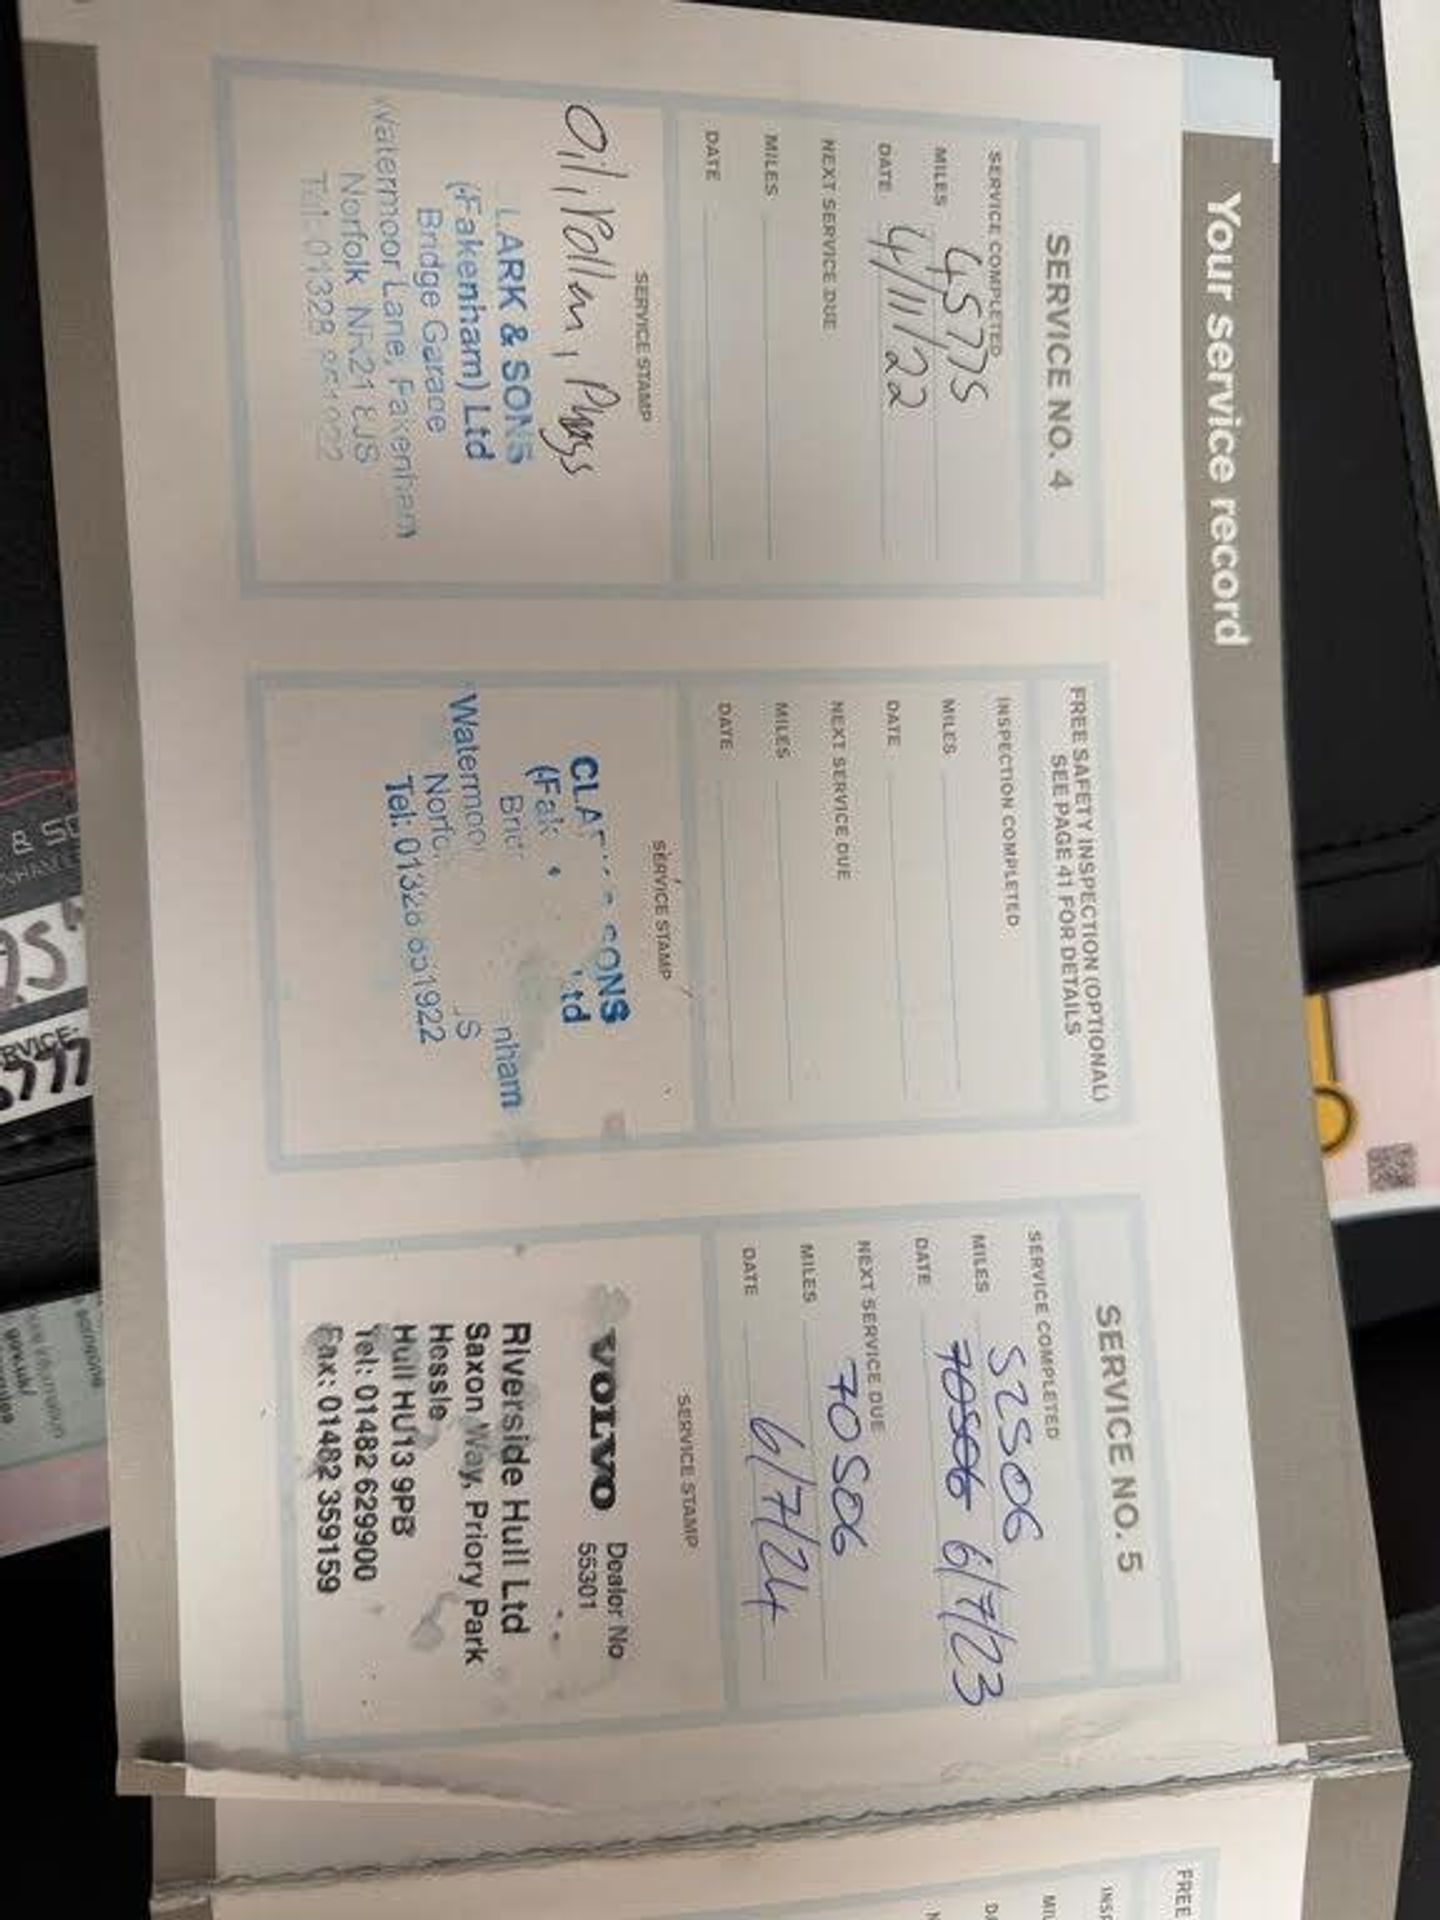 Your service record
SERVICE NO. 4
SERVICE COMPLETED
MILES 45775
DATE 4/11/22
NEXT SERVICE DUE
MILES
DATE
SERVICE STAMP
Oil, Pollen, Plugs
LARK & SONS
(Fakenham) Ltd
Bridge Garage
Watermoor Lane, Fakenham
Norfolk NR21
Tel: 01328
FREE SAFETY INSPECTION (OPTIONAL)
SEE PAGE 41 FOR DETAILS
INSPECTION COMPLETED
MILES
DATE
NEXT SERVICE DUE
MILES
DATE
SERVICE STAMP
CLA SONS
(Fak td
Brid
Watermoo nham
Norfo S
Tel: 01328 851922
SERVICE NO. 5
SERVICE COMPLETED
MILES 52506
DATE 70506 6/7/23
NEXT SERVICE DUE
MILES 70506
DATE 6/7/24
SERVICE STAMP
VOLVO Dealer No
55301
Riverside Hull Ltd
Saxon Way, Priory Park
Hessle
Hull HU13 9PB
Tel: 01482 629900
Fax: 01482 359159
FREE
INSP
MIL
DA
N
& SO
RVICE-
777